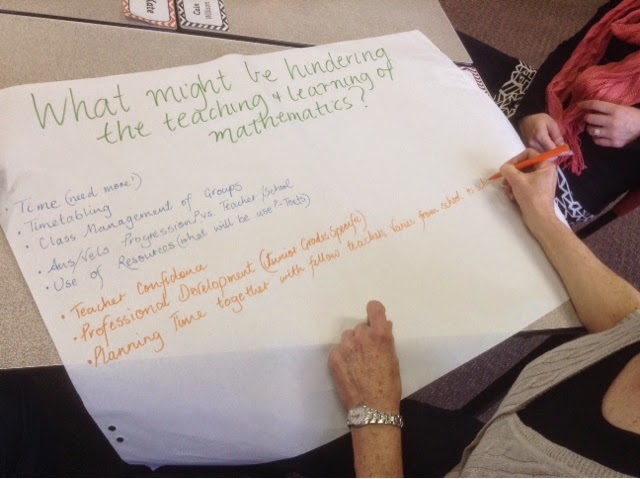 Kate
Cain
Williams
What might be hindering
the teaching + learning of
mathematics?
• Time (need more!)
• Timetabling
• Class Management of Groups
• Aus/Vels Progression/vs Teacher/School
• Use of Resources (what will be use? - Texts)
• Teacher Confidence
• Professional Development (Junior Grades Specific)
• Planning Time together with fellow teachers varies from school to